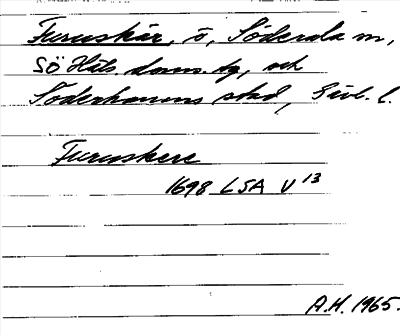 Furuskär, ö, Söderala sn,
SÖ Häls. doms.-tg, och
Söderhamns stad, Gävl. l.
Furuskere
1698 LSA V 13
A.H. 1965.